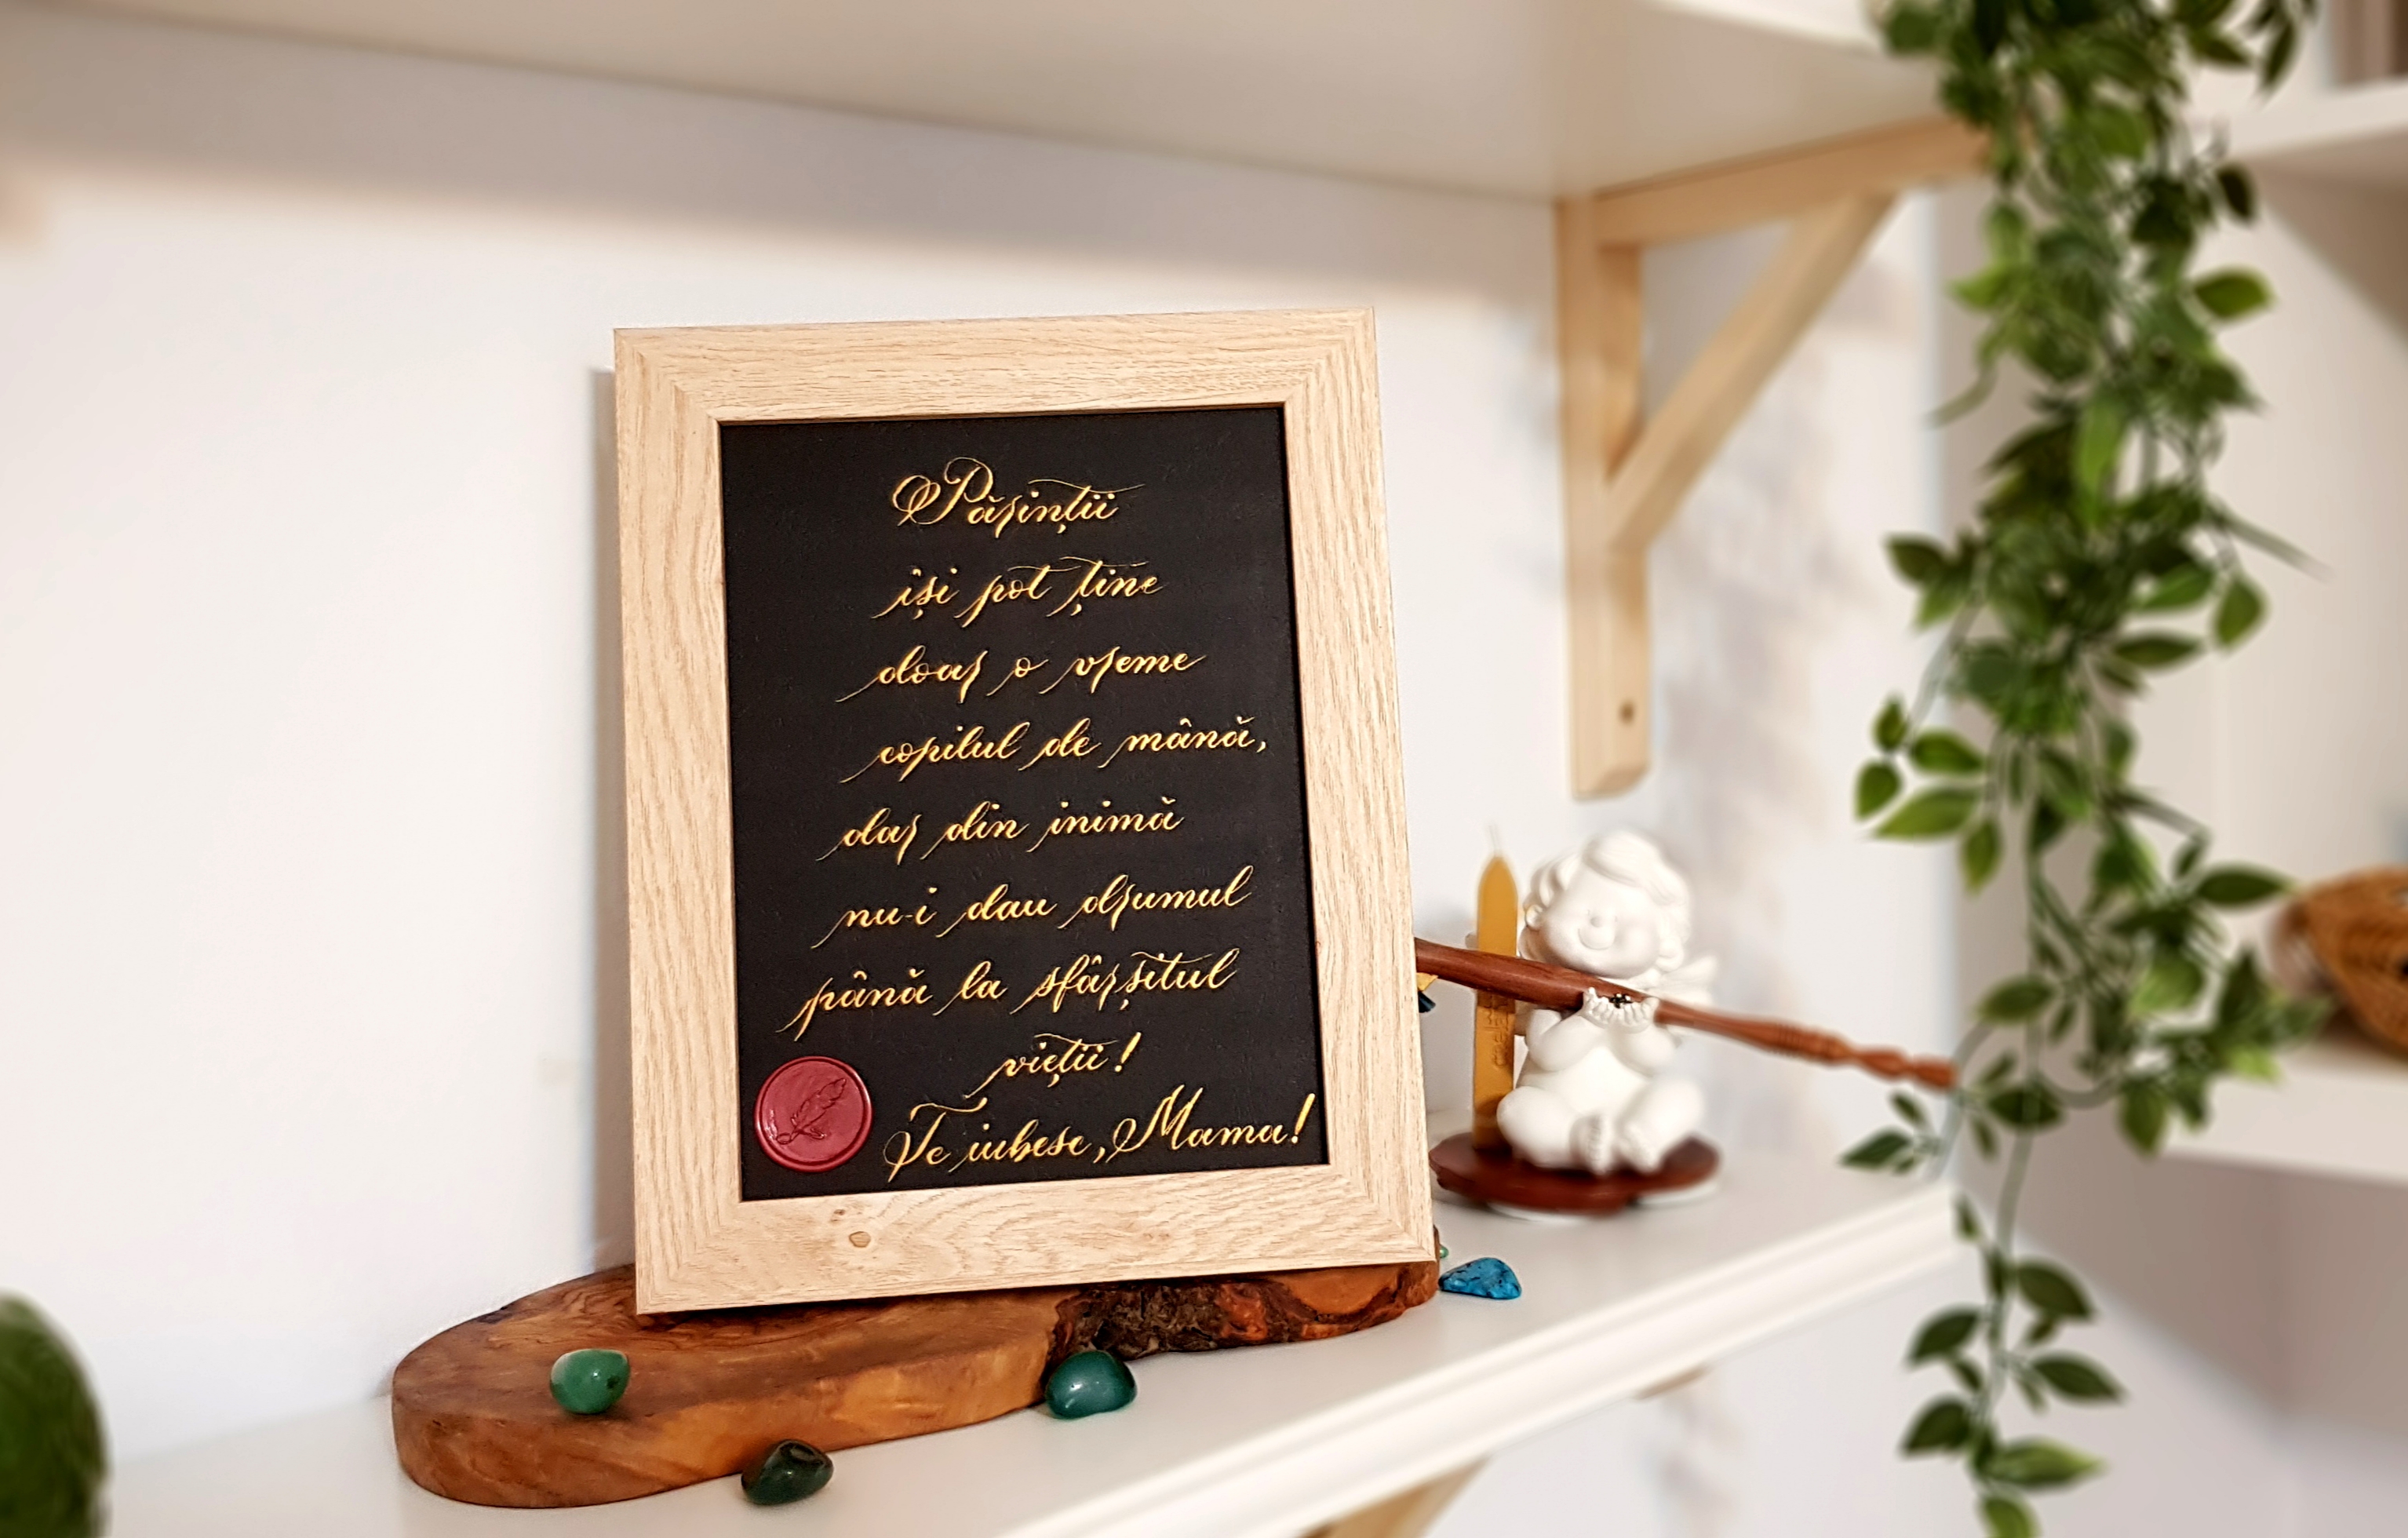 Părinții
își pot ține
doar o vreme
copilul de mână,
dar din inimă
nu-i dau drumul
până la sfârșitul
vieții!
Te iubesc, Mama!